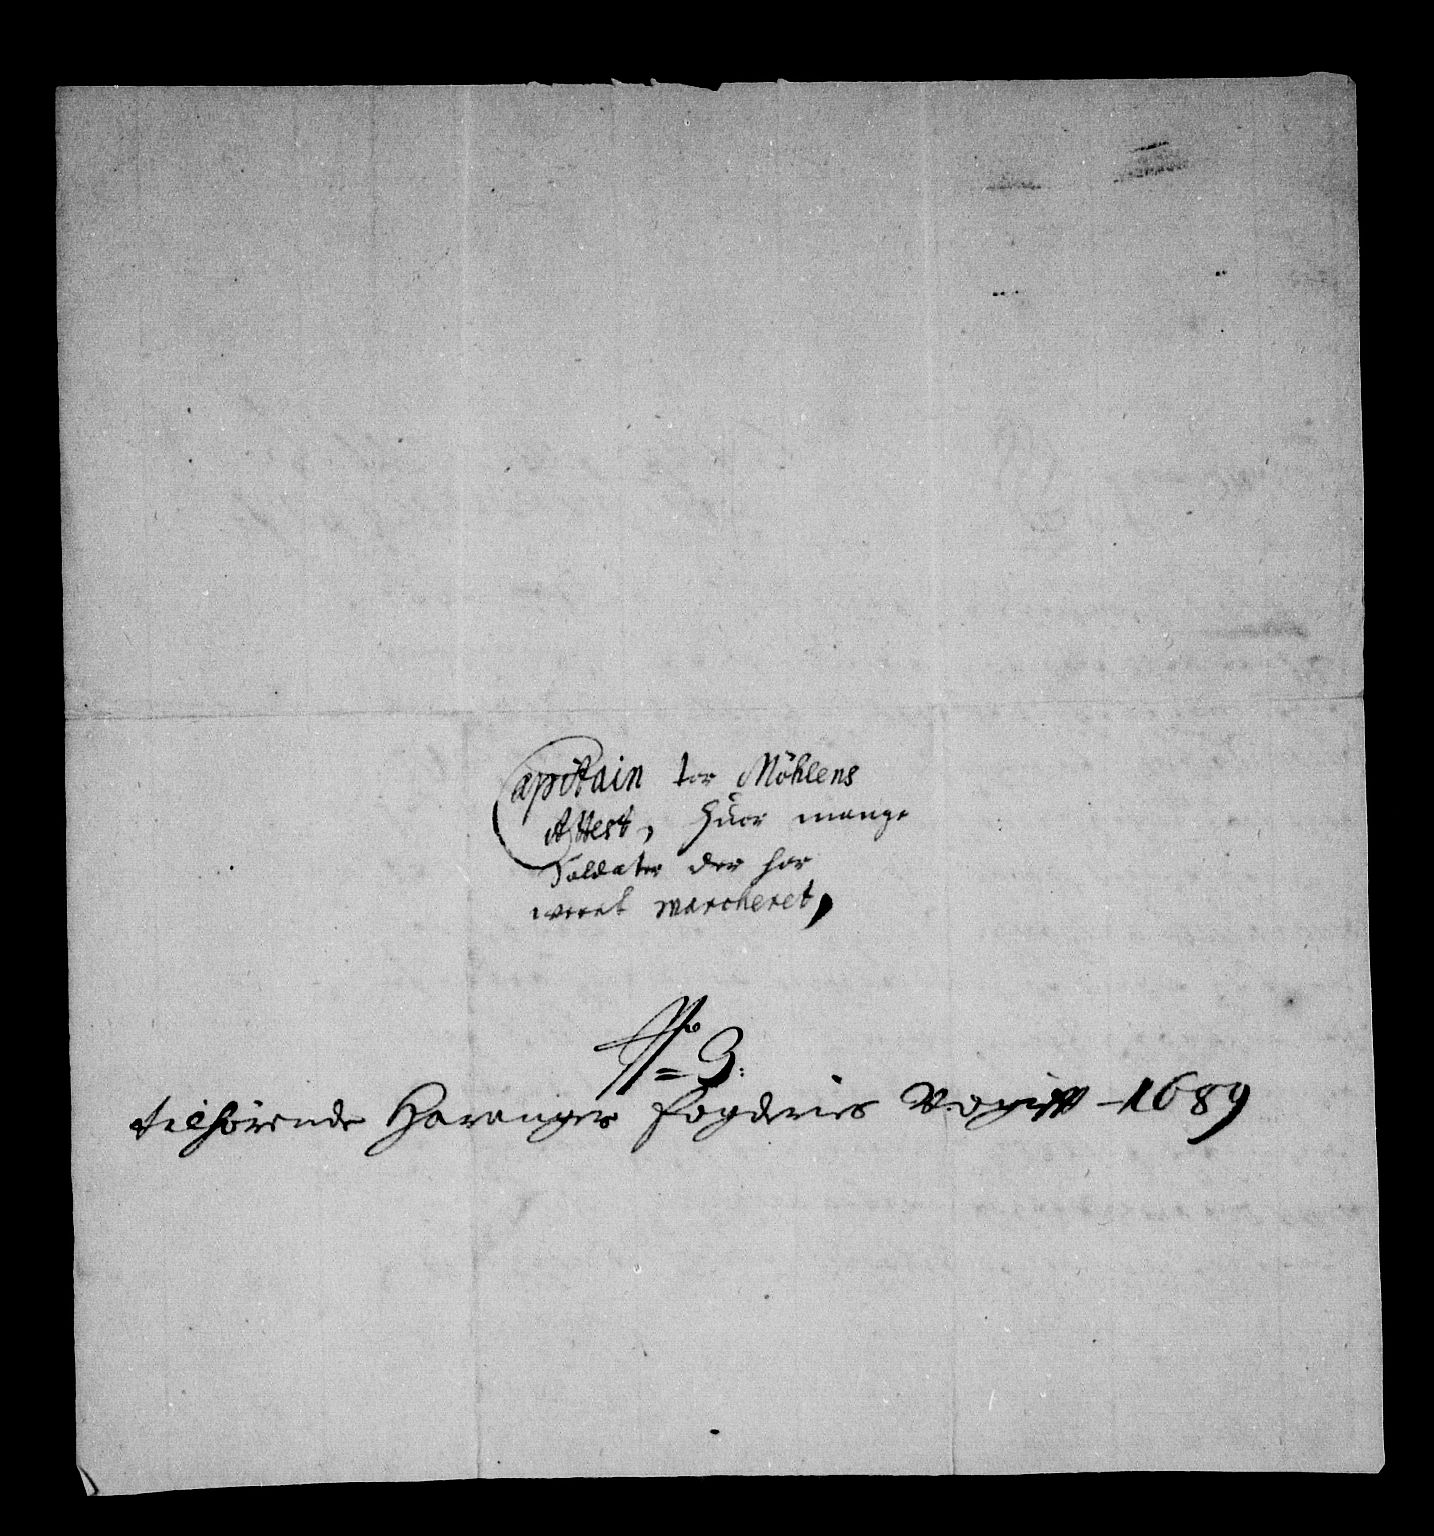 Capitain tor Möhlens
Attest, Huor mange
Soldater der har
werret marcheret,
No = 3:
tilhörende Haranger fogderies 1689